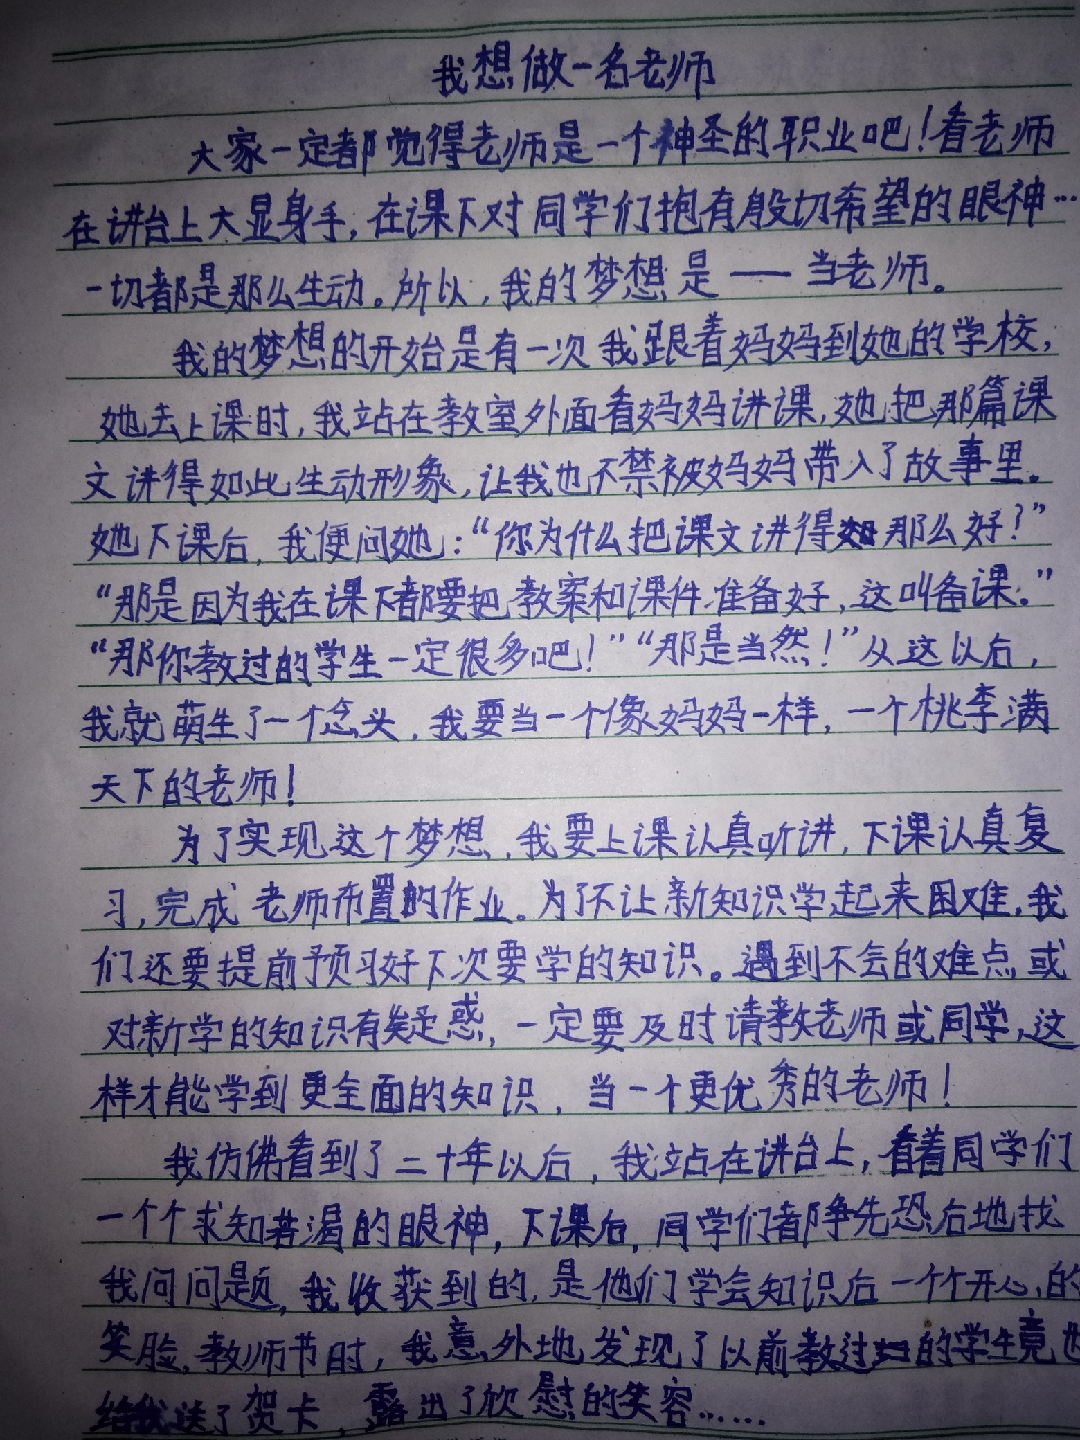 我想做一名老师
大家一定都觉得老师是一个神圣的职业吧！看老师
在讲台上大显身手，在课下对同学们抱有殷切希望的眼神…
一切都是那么生动。所以，我的梦想是——当老师。
我的梦想的开始是有一次我跟着妈妈到她的学校，
她去上课时，我站在教室外面看妈妈讲课，她把那篇课
文讲得如此生动形象，让我也不禁被妈妈带入了故事里。
她下课后，我便问她：“你为什么把课文讲得那么好？”
“那是因为我在课下都要把教案和课件准备好，这叫备课。”
“那你教过的学生一定很多吧！”“那是当然！”从这以后，
我就萌生了一个念头，我要当一个像妈妈一样，一个桃李满
天下的老师！
为了实现这个梦想，我要上课认真听讲，下课认真复
习，完成老师布置的作业。为了不让新知识学起来困难，我
们还要提前预习好下次要学的知识。遇到不会的难点或
对新学的知识有疑惑，一定要及时请教老师或同学，这
样才能学到更全面的知识，当一个更优秀的老师！
我仿佛看到了二十年以后，我站在讲台上，看着同学们
一个个求知若渴的眼神，下课后，同学们都争先恐后地找
我问问题，我收获到的，是他们学会知识后一个个开心的
笑脸，教师节时，我意外地发现了以前教过的学生竟也
给我送了贺卡，露出了欣慰的笑容……